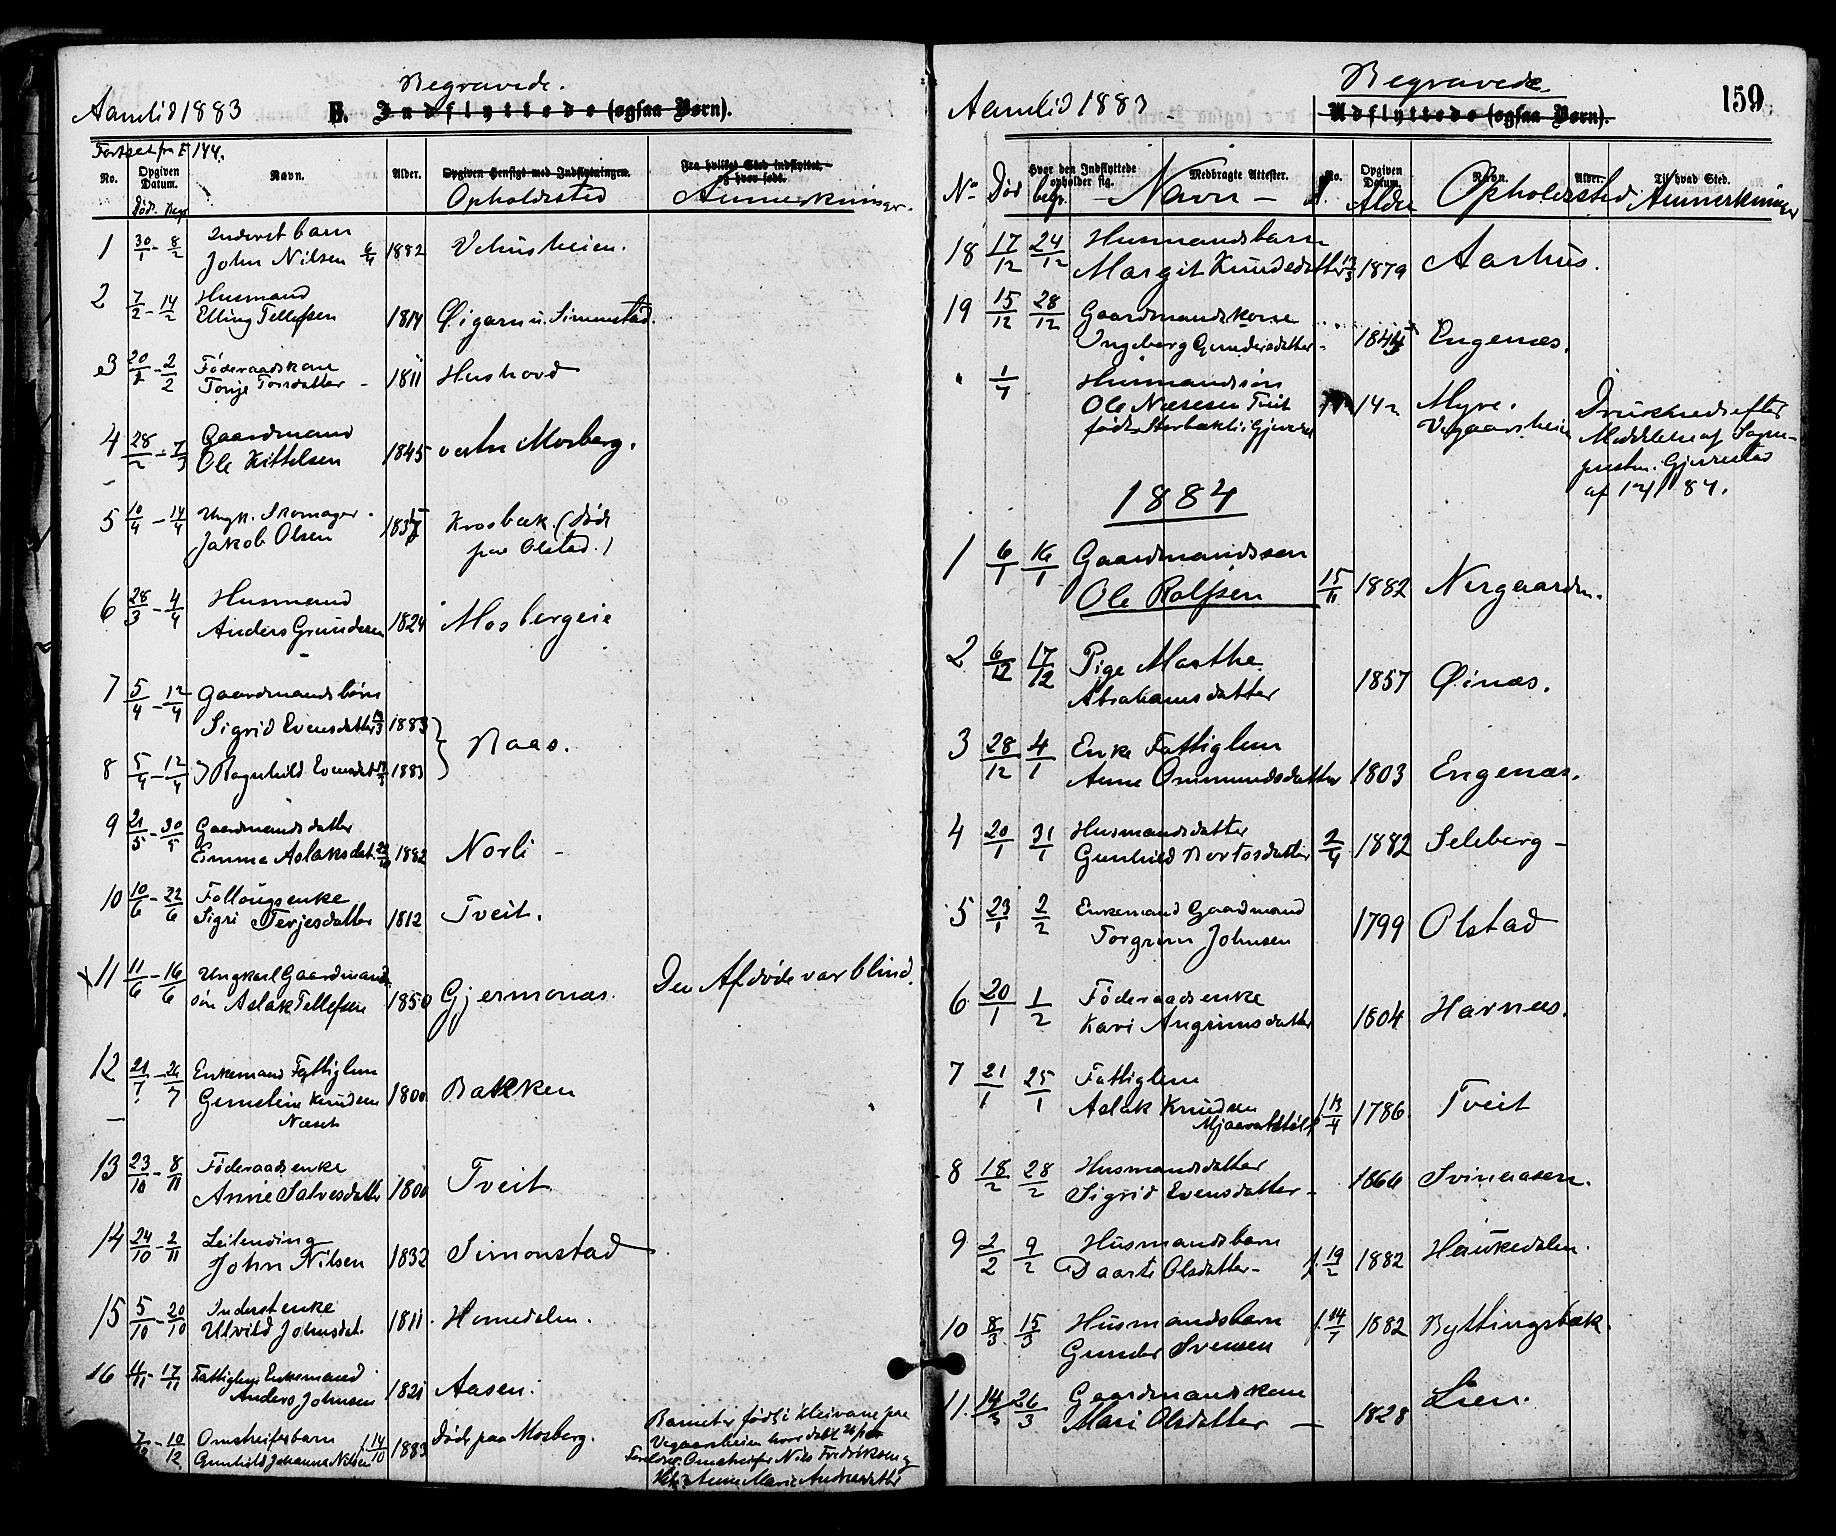 Begravede.
Aamlid 1883 E. Indflyttede (ogsaa Børn).
Fortsat fra E 144.
No. Opgiven Datum. Navn. Alder. Opgiven Hensigt med Indflytningen. Fra hvilket Sted indflyttet, og hvor født.
Død. Begr. Opholdssted Anmerkninger.
1 30/1 - 8/2 Inderst barn
John Nilsen 6/4 1882 Vehusheien.
2 7/2 - 14/2 Husmand
Elling Tellefsen 1814 Øigarn u. Simonstad.
3 20/2 - 2/2 Føderaadskone
Tonje Torsdatter - 1811 Hushovd
4 28/2 - 7/3 Gaardmand
Ole Kittelsen 1845 vestre Mosberg.
5 10/4 - 14/4 Ungk. Skomager
Jakob Olsen Krosbæk (død
paa Olstad.)
6 28/3 - 4/4 Husmand
Anders Gundersen 1824 Mosbergeie
7 5/4 - 12/4 Gaardmandsbørn
Sigrid Evensdatter 1883
Raas.
8 5/4 - 12/4 Ragnhild Evensdat 1883
9 21/5 - 30/5 Gaardmandsdatter
Emma Aslaksdat. 1882 Norli -
10 10/6 - 22/6 Follougsenke
Sigri Terjesdatter 1812 Tveit.
11 11/6 - 16/6 Ungkarl Gaardmands
søn Aslak Tellefsen 1850 Gjermonæs. Den Afdøde var blind.
12 21/7 - 26/7 Enkemand Fattiglem
Knudsen 1800 Bakken
Næset
13 23/10 - 8/11 Føderaadsenke
Anne Salvesdatter 1800 Tveit
14 24/10 - 2/11 Leilending
John Nilsen 1832 Simonstad
15 5/10 - 20/10 Inderst enke
Ulvild Johnsdat. 1811. Homedalen.
16 4/11 - 17/11 Fattiglem Enkemand
Anders Johnsen 1821 Aasen.
10/12 Omstreiferbarn
Gunhild Johanne Nilsen f. 14/10 1883 Død paa Mosberg.
Barnet er født i Kleivane paa
Vegaarsheien hvor døbt
Forældre: Omstreifer Nils Fredriksen og
Anne Marie Andreasdatter
Begravede
159
Aamlid 1883 Udflyttede (ogsaa Børn).
Hvor den Indflyttede opholder sig. Medbragte Attester. No. Opgiven Datum. Navn. Alder. Til hvad Sted.
No Død begr. - Navn - Alder Opholdssted Anmerkninger
18 17/12 24/12 Husmandsbarn
Margit Knudsdatter 13/3 1879 Aarhus.
19 15/12 28/12 Gaardmandskone
Ingeborg Gundersdatter - Engenæs.
" 1/7 Husmandssøn
Ole Næsesen Tveit
født Storbækli i Gjerrestad 14 Myre.
Vegaarsheien
Druknede efter
Meddelelse af Sogne-
presten i Gjerrestad
1884
1 6/1 16/1 Gaardmandssøn
Ole Rolfsen 15/11 1882 Nergaarden.
2 6/12 17/12 Pige Marthe
Abrahamsdatter 1857 Øinæs.
3 28/12 4/1 Enke Fattiglem
Anne Ommundsdatter 1803 Engenæs.
4 20/1 31/1 Husmandsdatter
Gunhild Bertosdatter 2/4 1882 Seleberg -
5 23/1 2/2 Enkemand Gaardmand
Torgrim Johnsen 1799 Olstad
6 20/1 1/2 Føderaadsenke
Kari Angrimsdatter 1804 Harnæs.
7 21/1 25/1 Fattiglem
Aslak Knudsen
Mjaavatstøl f. 13/4 1786 Tveit
8 18/2 28/2 Husmandsdatter
Sigrid Evensdatter - 1866 Svinaasen.
9 2/2 9/2 Husmandsbarn
Daarte Olsdatter - f. 19/2 1882 Haukedalen.
10 8/3 15/3 Husmandsbarn
Gunder Svensen f. 14/7 1882 Byttingsbæk.
11. 14/3 26/3 Gaardmandskone
Mari Olsdatter - 1828 Lien.